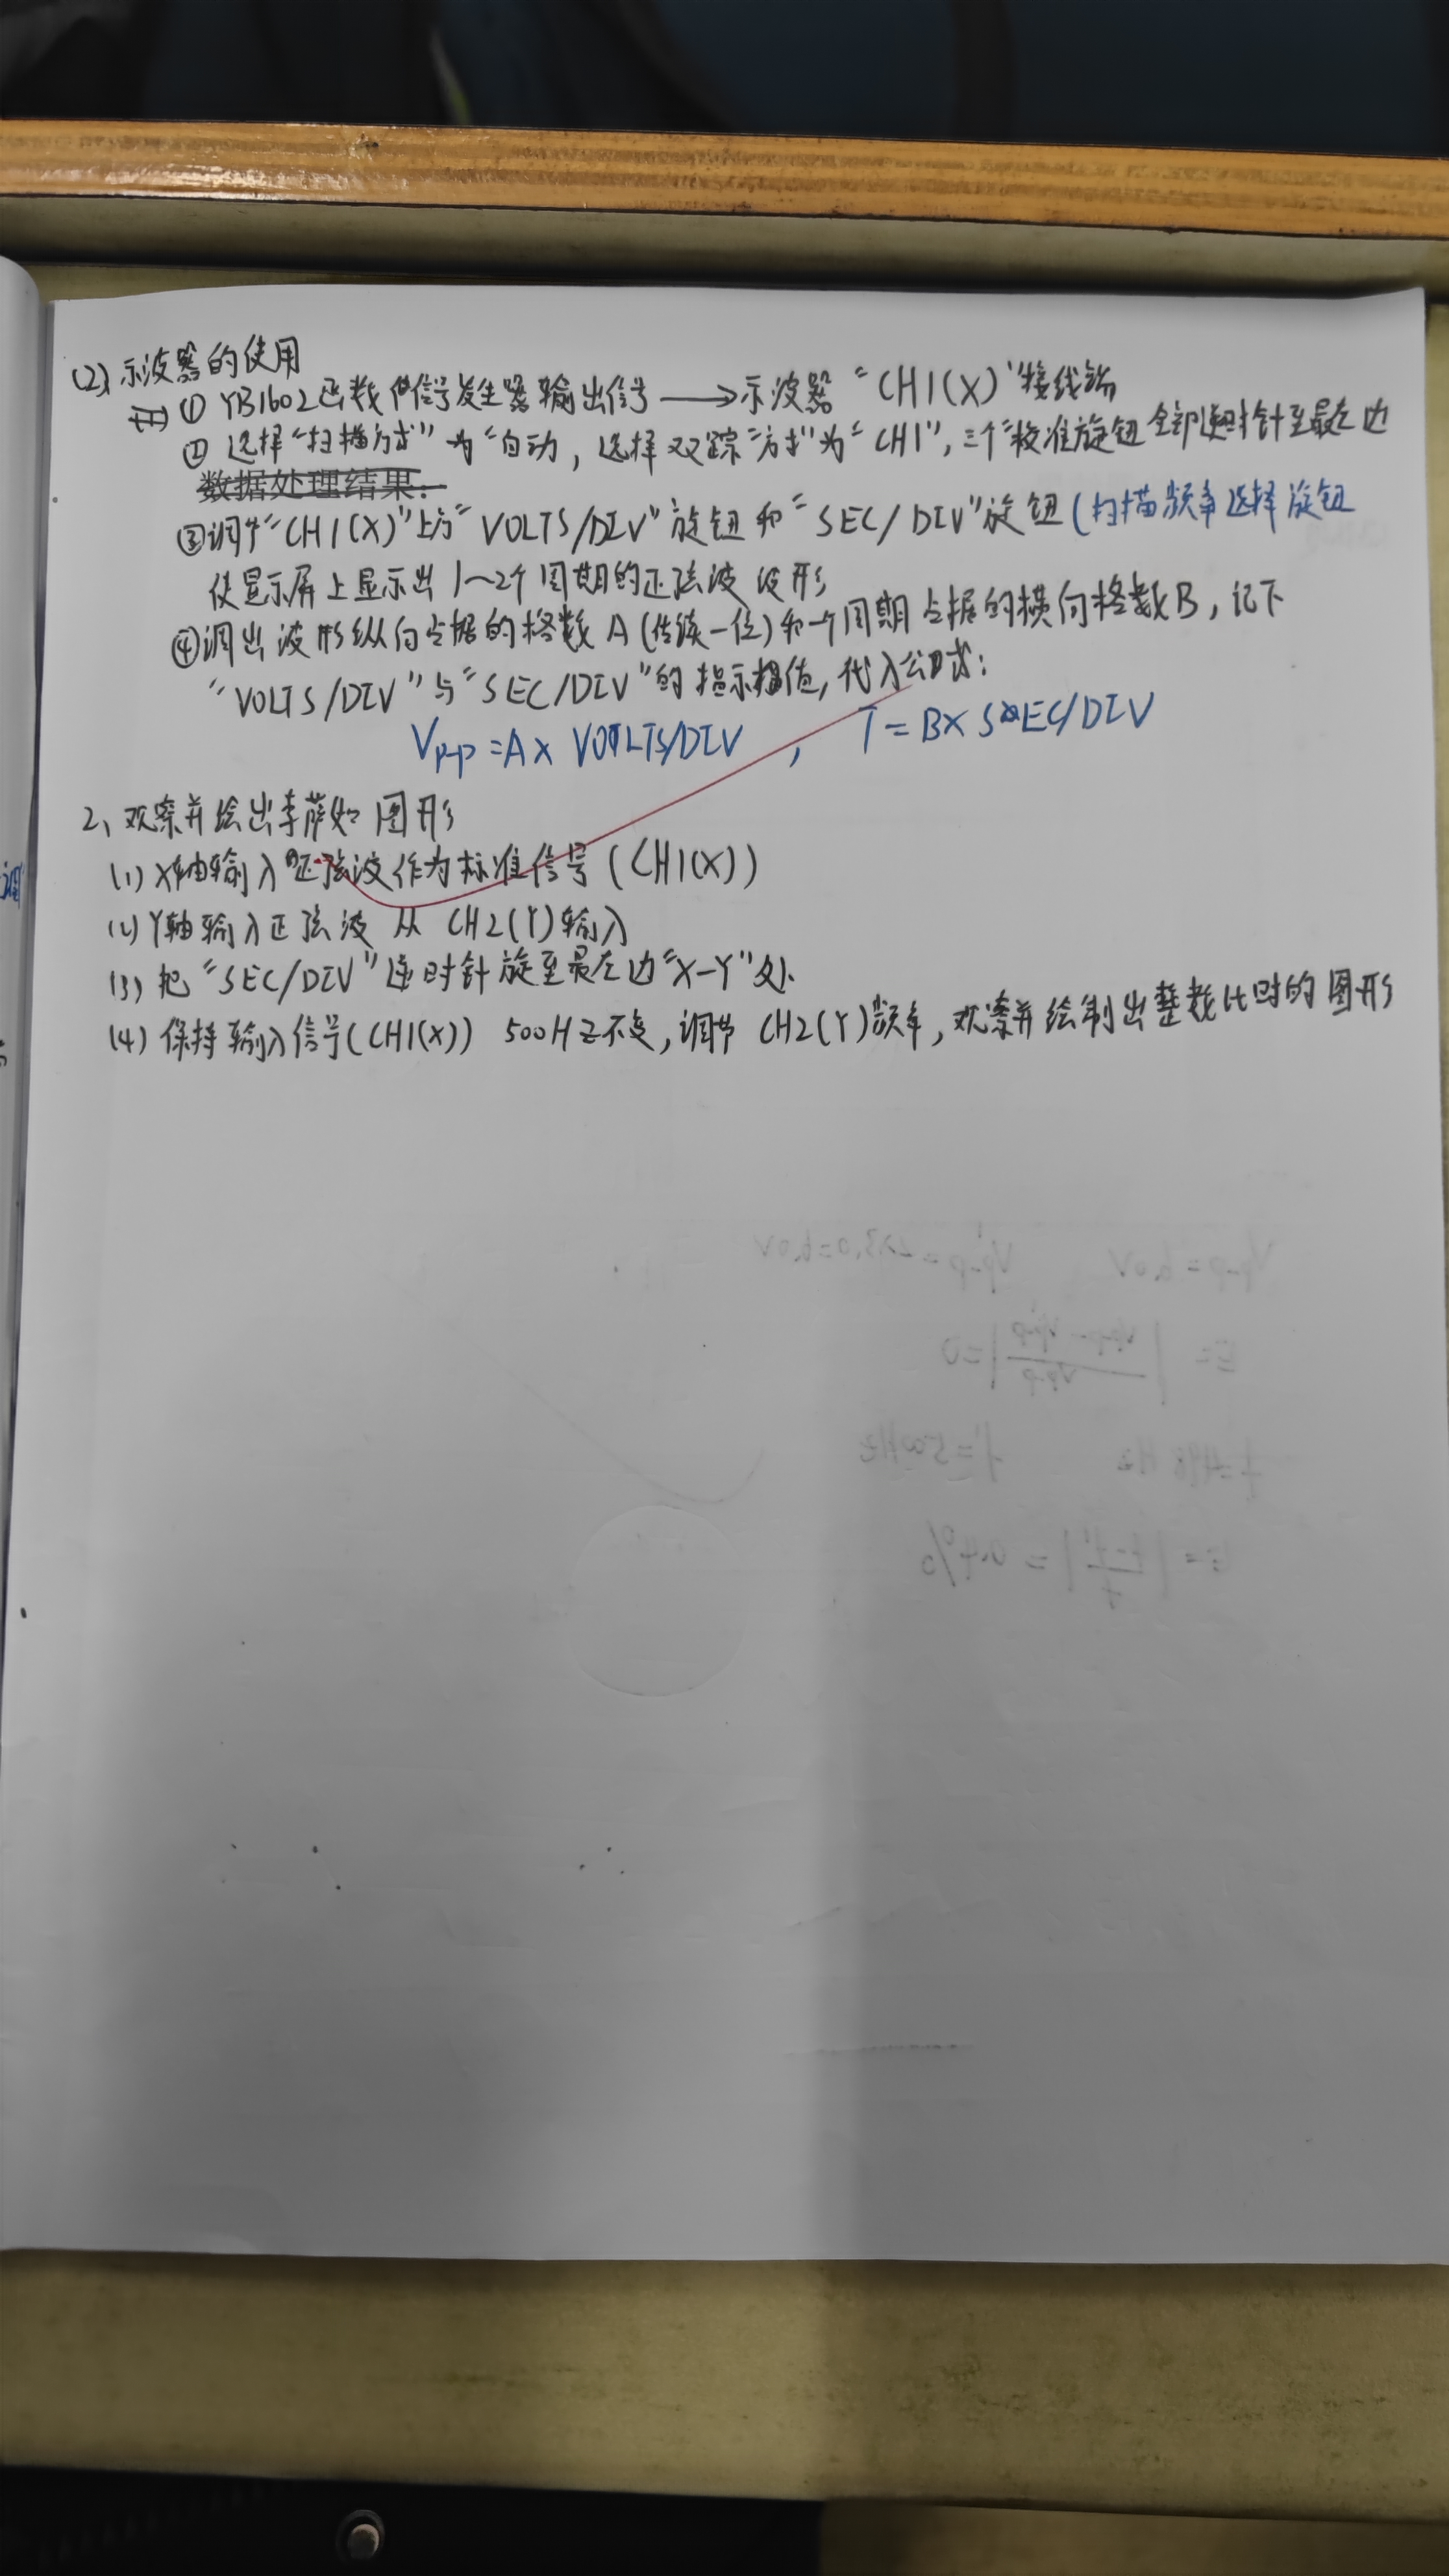 (2)、示波器的使用
① YB1602函数信号发生器输出信号 → 示波器“CH1(X)”接线端
② 选择“扫描方式”为“自动，选择双踪“方式”为“CH1”，三个“校准旋钮全部逆时针至最左边
数据处理结果：
③调节“CH1(X)”上方“VOLTS/DIV”旋钮和“SEC/DIV”旋钮(扫描频率选择旋钮
使显示屏上显示出1~2个周期的正弦波波形
④调出波形纵向占据的格数A(估读一位)和一个周期占据的横向格数B，记下
“VOLTS/DIV”与“SEC/DIV”的指示值，代入公式：
Vp-p=A×VOLTS/DIV ， T=B×SEC/DIV
2、观察并绘出李萨如图形
(1) X轴输入正弦波作为标准信号(CH1(X))
(2) Y轴输入正弦波 从 CH2(Y)输入
(3) 把“SEC/DIV”逆时针旋至最左边“X-Y”处
(4) 保持输入信号(CH1(X)) 500HZ不变，调节CH2(Y)频率，观察并绘制出整数比时的图形